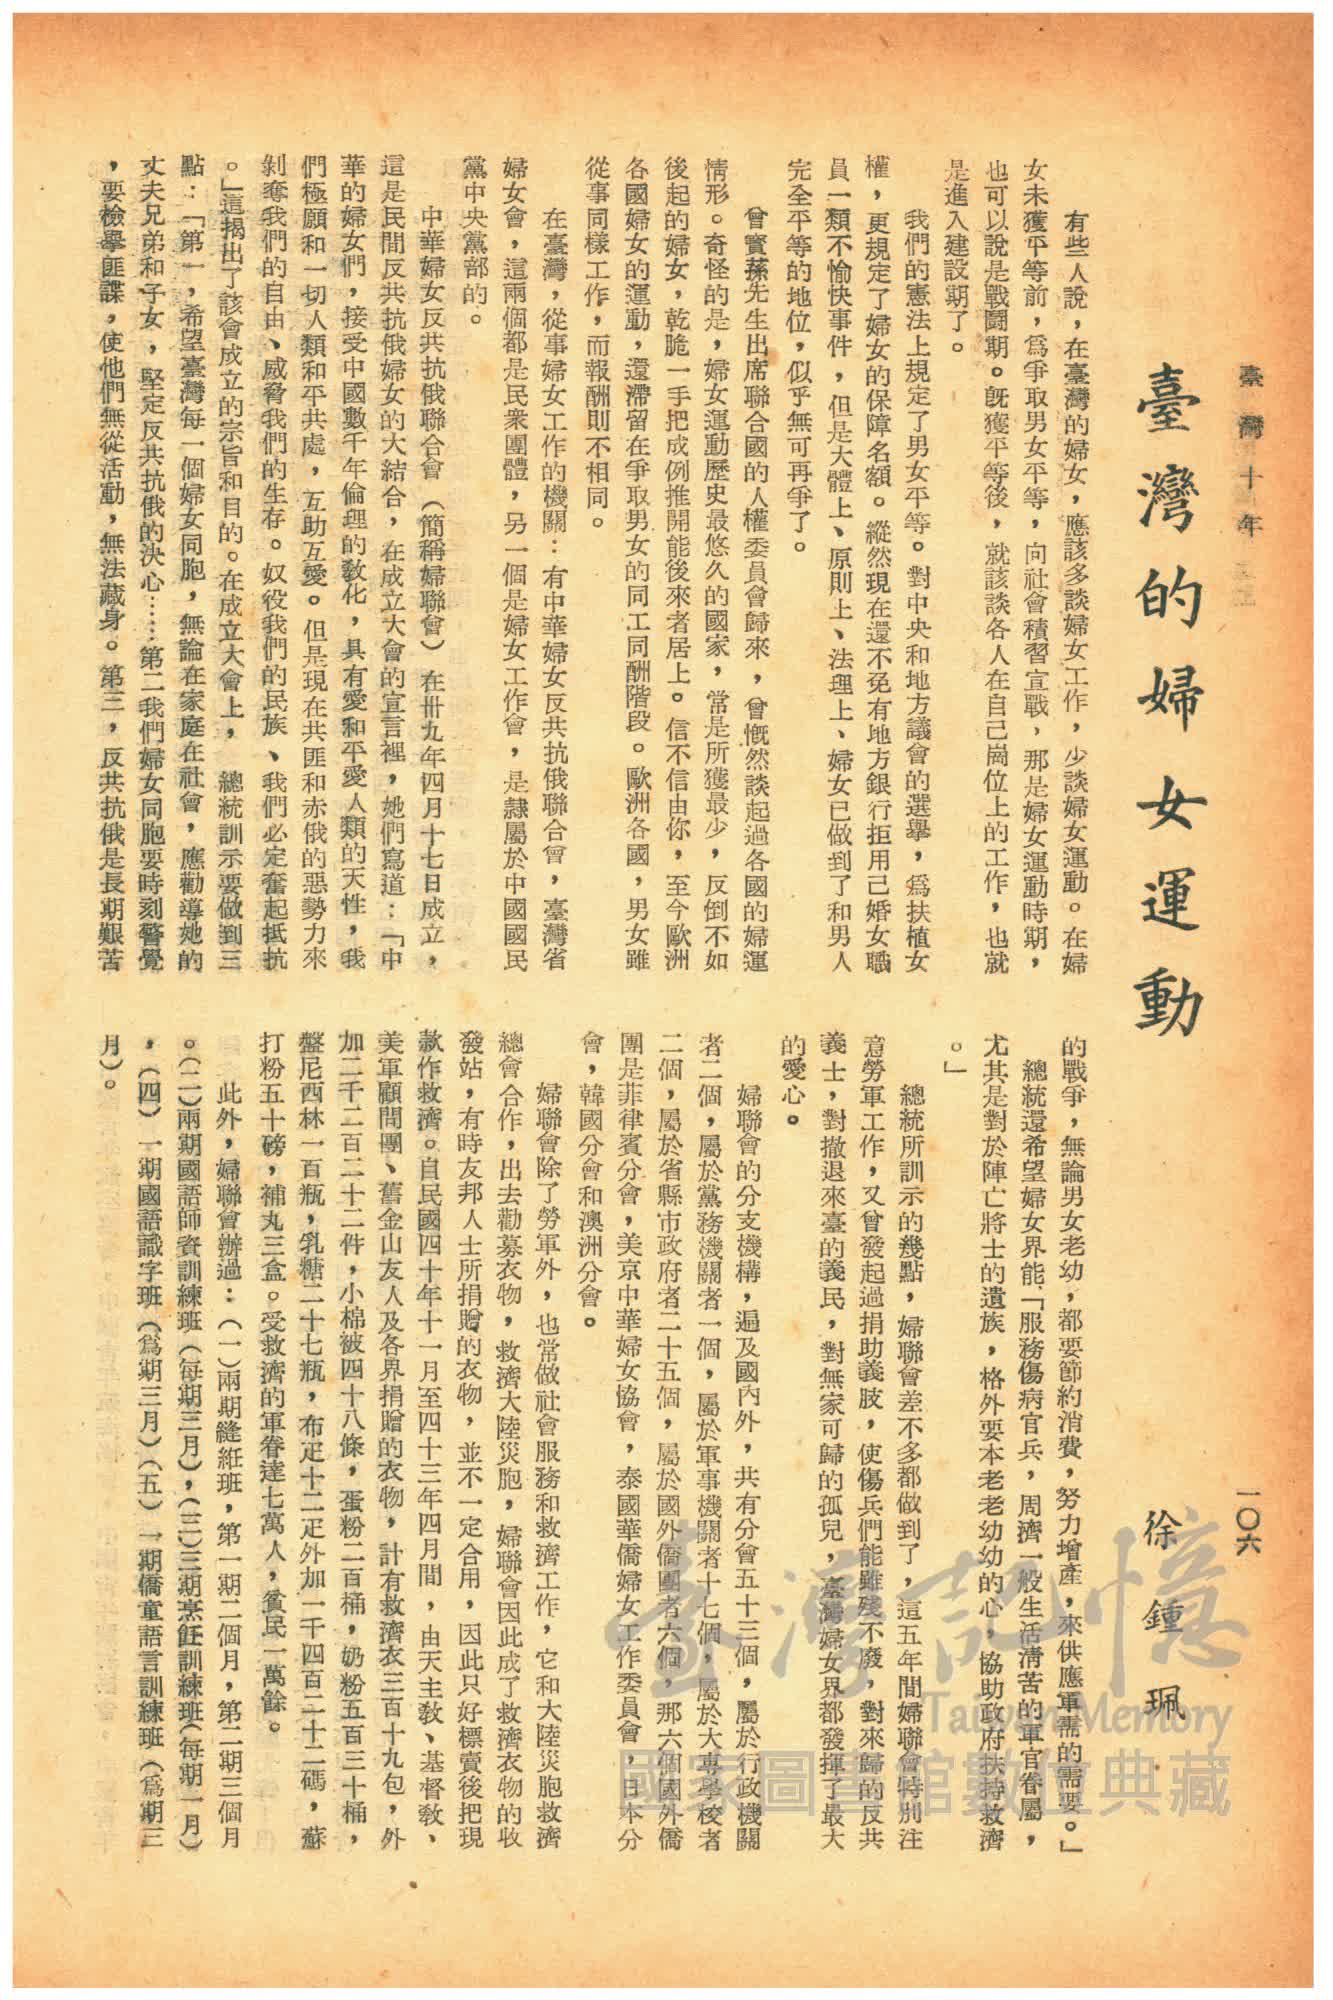 臺灣十年
一〇六
臺灣的婦女運動
徐鍾珮
有些人說，在臺灣的婦女，應該多談婦女工作，少談婦女運動。在婦
女未獲平等前，爲爭取男女平等，向社會積習宣戰，那是婦女運動時期，
也可以說是戰鬪期。旣獲平等後，就該談各人在自己崗位上的工作，也就
是進入建設期了。
我們的憲法上規定了男女平等。對中央和地方議會的選舉，爲扶植女
權，更規定了婦女的保障名額。縱然現在還不免有地方銀行拒用已婚女職
員一類不愉快事件，但是大體上、原則上、法理上、婦女已做到了和男人
完全平等的地位，似乎無可再爭了。
曾寶蓀先生出席聯合國的人權委員會歸來，曾慨然談起過各國的婦運
情形。奇怪的是，婦女運動歷史最悠久的國家，常是所獲最少，反倒不如
後起的婦女，乾脆一手把成例推開能後來者居上。信不信由你，至今歐洲
各國婦女的運動，還滯留在爭取男女的同工同酬階段。歐洲各國，男女雖
從事同樣工作，而報酬則不相同。
在臺灣，從事婦女工作的機關：有中華婦女反共抗俄聯合會，臺灣省
婦女會，這兩個都是民衆團體，另一個是婦女工作會，是隸屬於中國國民
黨中央黨部的。
中華婦女反共抗俄聯合會（簡稱婦聯會）在卅九年四月十七日成立，
這是民間反共抗俄婦女的大結合，在成立大會的宣言裡，她們寫道：「中
華的婦女們，接受中國數千年倫理的敎化，具有愛和平愛人類的天性，我
們極願和一切人類和平共處，互助互愛。但是現在共匪和赤俄的惡勢力來
剝奪我們的自由、威脅我們的生存。奴役我們的民族、我們必定奮起抵抗
。」這揭出了該會成立的宗旨和目的。在成立大會上，　總統訓示要做到三
點：「第一，希望臺灣每一個婦女同胞，無論在家庭在社會，應勸導她的
丈夫兄弟和子女，堅定反共抗俄的決心……第二我們婦女同胞要時刻警覺
，要檢舉匪諜，使他們無從活動，無法藏身。第三，反共抗俄是長期艱苦
的戰爭，無論男女老幼，都要節約消費，努力增產，來供應軍需的需要。」
總統還希望婦女界能，「服務傷病官兵，周濟一般生活淸苦的軍官眷屬，
尤其是對於陣亡將士的遺族，格外要本老老幼幼的心，協助政府扶持救濟
。」
總統所訓示的幾點，婦聯會差不多都做到了，這五年間婦聯會特別注
意勞軍工作，又曾發起過捐助義肢，使傷兵們能雖殘不廢，對來歸的反共
義士，對撤退來臺的義民，對無家可歸的孤兒，臺灣婦女界都發揮了最大
的愛心。
婦聯會的分支機構，遍及國內外，共有分會五十三個，屬於行政機關
者二個，屬於黨務機關者一個，屬於軍事機關者十七個，屬於大專學校者
二個，屬於省縣市政府者二十五個，屬於國外僑團者六個，那六個國外僑
團是菲律賓分會，美京中華婦女協會，泰國華僑婦女工作委員會，日本分
會，韓國分會和澳洲分會。
婦聯會除了勞軍外，也常做社會服務和救濟工作，它和大陸災胞救濟
總會合作，出去勸募衣物，救濟大陸災胞，婦聯會因此成了救濟衣物的收
發站，有時友邦人士所捐贈的衣物，並不一定合用，因此只好標賣後把現
款作救濟。自民國四十年十一月至四十三年四月間，由天主敎、基督敎、
美軍顧問團、舊金山友人及各界捐贈的衣物，計有救濟衣三百十九包，外
加二千二百二十二件，小棉被四十八條，蛋粉二百桶，奶粉五百三十桶，
盤尼西林一百瓶，乳糖二十七瓶，布疋十二疋外加一千四百二十二碼，蘇
打粉五十磅，補丸三盒。受救濟的軍眷達七萬人，貧民一萬餘。
此外，婦聯會辦過：（一）兩期縫紝班，第一期二個月，第二期三個月
。（二）兩期國語師資訓練班（每期三月），（三）三期烹飪訓練班（每期一月）
，（四）一期國語識字班（爲期三月）（五）一期僑童語言訓練班（爲期三
月）。
臺灣記憶
Taiwan Memory
國家圖書館數位典藏